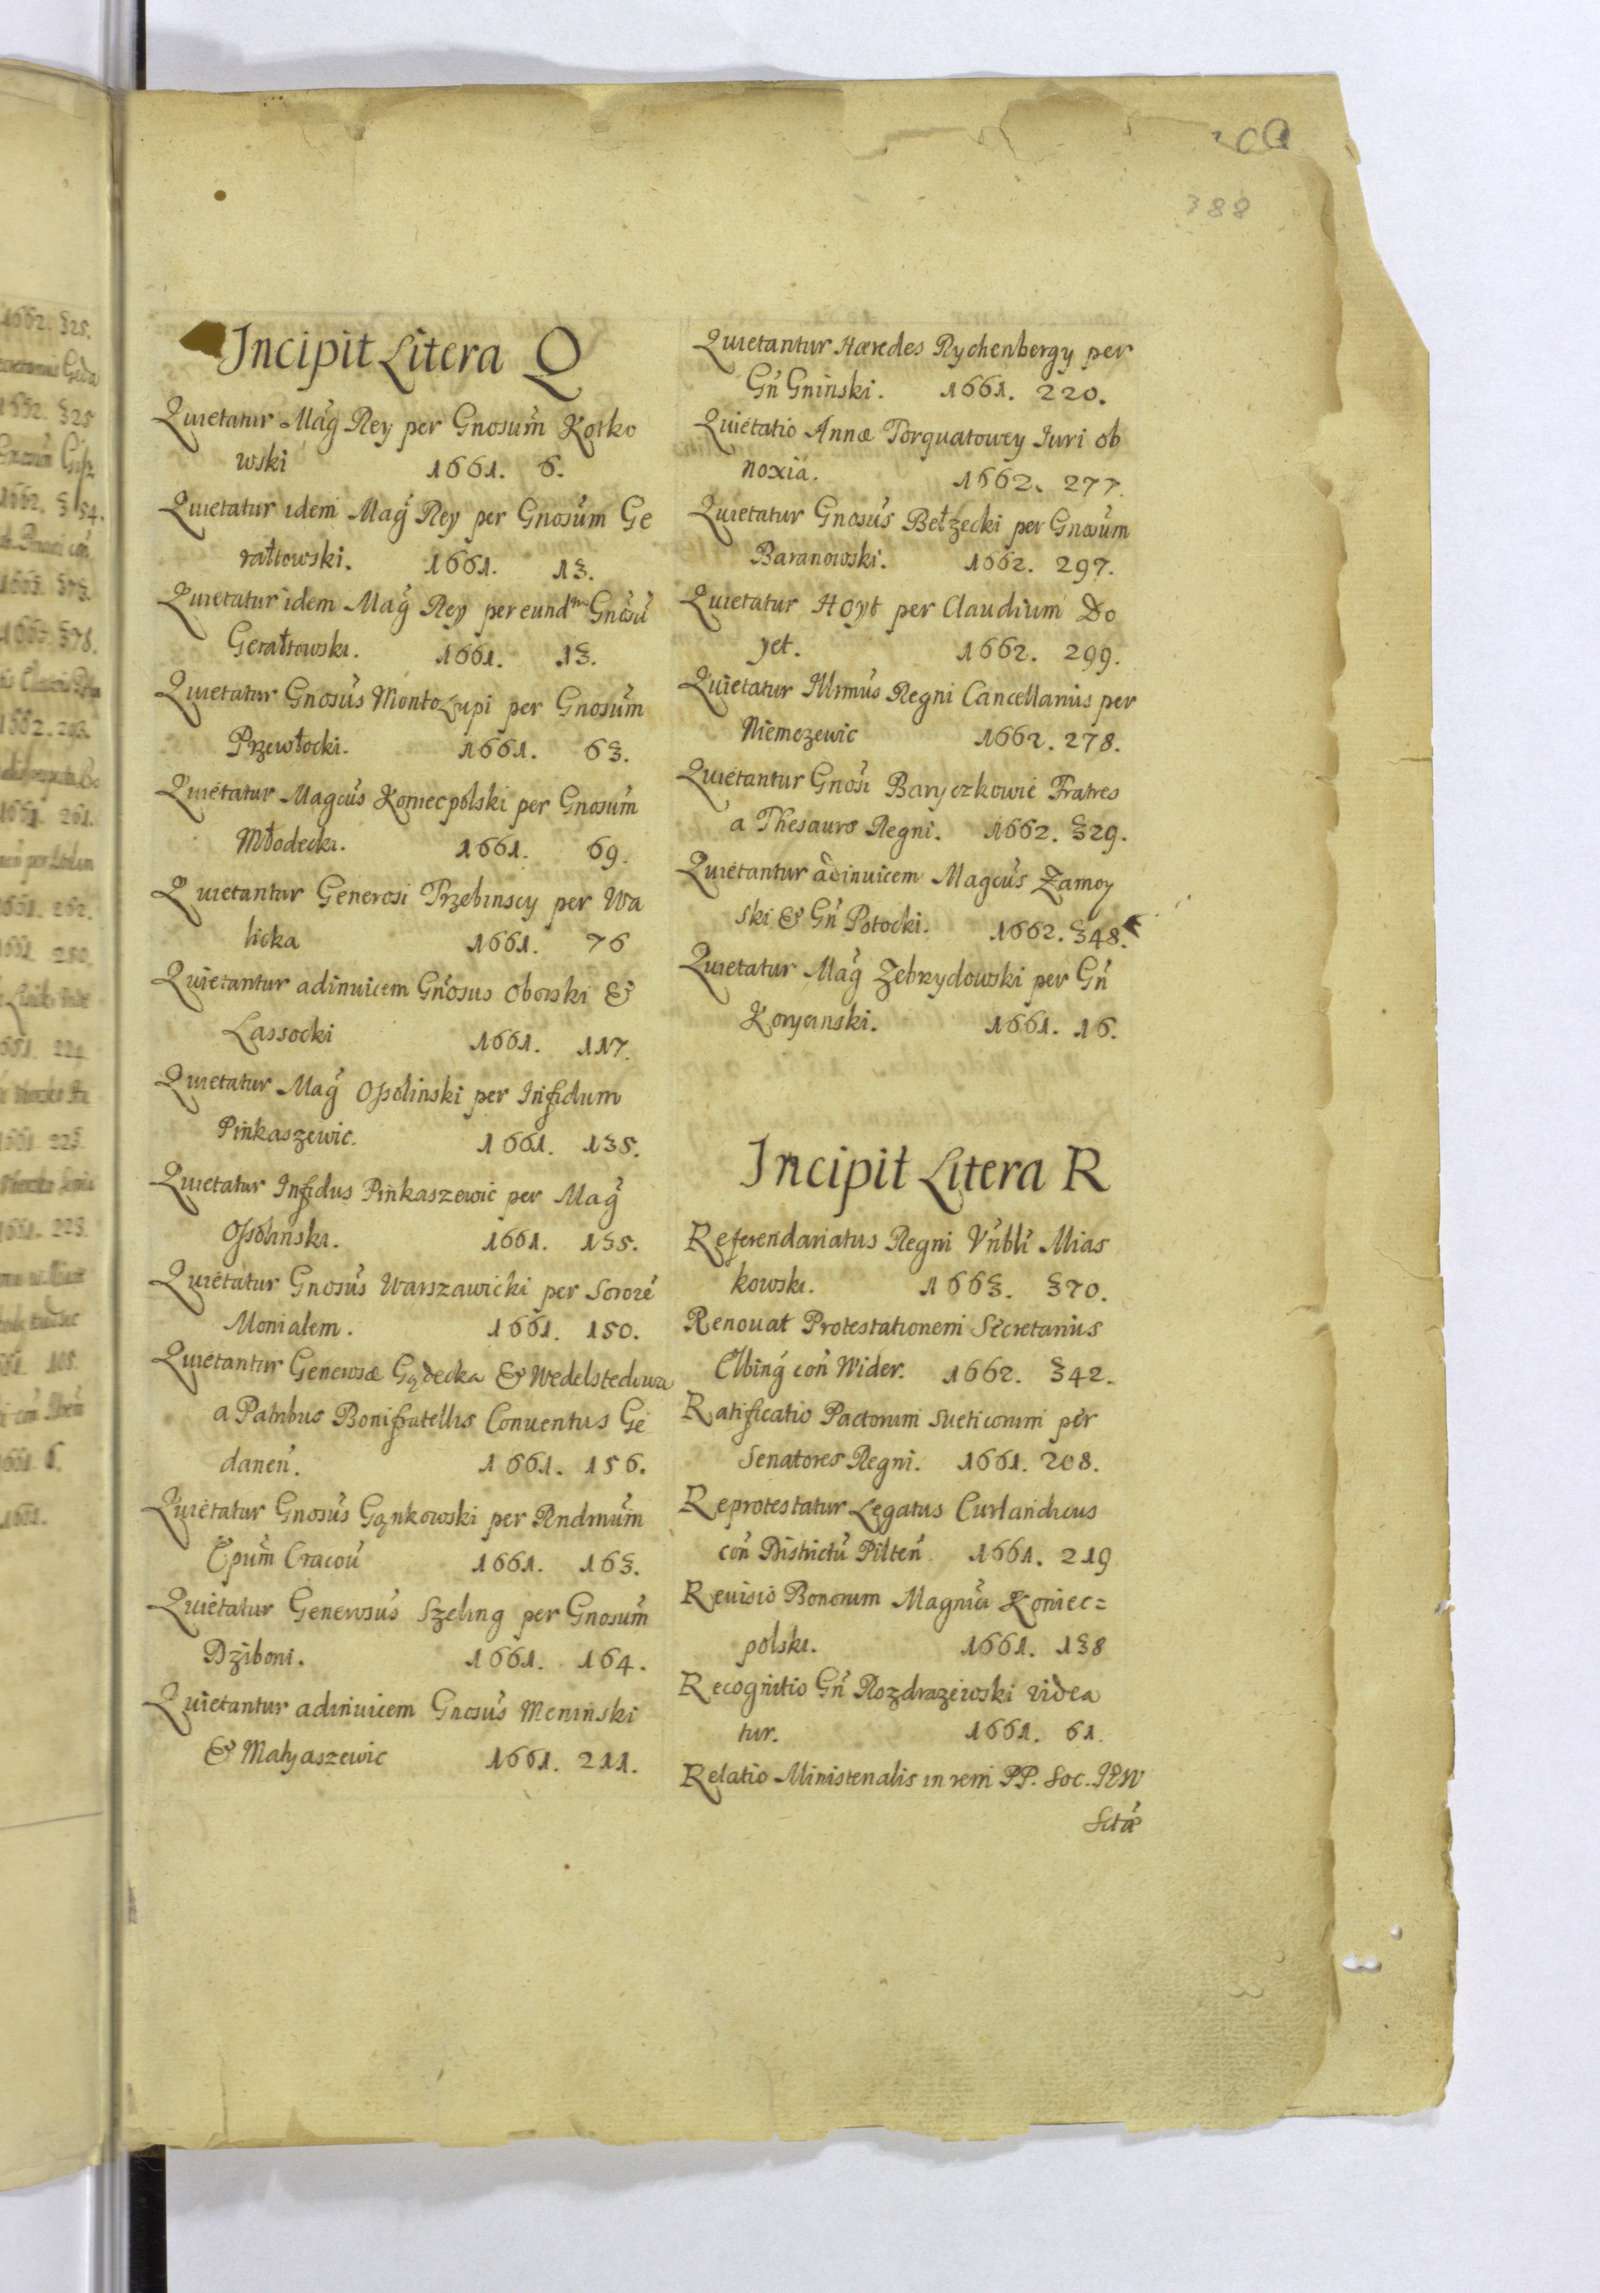 388
Incipit Litera Q
Quietatur Mag̃ Rey per Gnosum̃ Kotko
wski 1661. 6.
Quietatur idem Mag̃ Rey per Gnosum̃ Ge
rałtowski. 1661. 13.
Quietatur idem Mag̃ Rey per eundm Gnosũ
Gerałtowski. 1661. 13.
Quietatur Gnosus̃ Montolupi per Gnosum̃
Przewłocki. 1661. 63.
Quietatur Magcus̃ Koniecpolski per Gnosum̃
Młodecki. 1661. 69.
Quietantur Generosi Trzebinscy per Wa
licka 1661. 76
Quietantur adinuicem Gnosus Oborski &
Lassocki 1661. 117.
Quietatur Mag̃ Ossolinski per Infidum
Pinkaszewic. 1661. 135.
Quietatur Infidus Pinkaszewic per Mag̃
Ossolinski. 1661. 135.
Quietatur Gnosus̃ Warszawicki per Sororẽ
Monialem. 1661. 150.
Quietantur Generosæ Gądecka & Wedelstedowa
a Patribus Bonifratellis Conuentus Ge
daneñ. 1661. 156.
Quietatur Gnosus̃ Gąnkowski per Rndmum̃
Epum̃ Cracoũ 1661. 163.
Quietatur Generosus̃ Szeling per Gnosum̃
Dziboni. 1661. 164.
Quietantur adinuicem Gnosus̃ Meninski
& Matyaszewic 1661. 211.
Quietantur Hæredes Rychenbergy per
Gñ Gninski. 1661. 220.
Quietatio Annæ Torquatowey Iuri ob
noxia. 1662. 277.
Quietatur Gnosus̃ Bełzecki per Gnosum̃
Baranowski. 1662. 297.
Quietatur Hoyt per Claudium Do
yet. 1662. 299.
Quietatur Illrmus̃ Regni Cancellarius per
Niemczewic 1662. 278.
Quietantur Gnosi̇̃ Baryczkowic Fratres
a Thesauro Regni. 1662. 329.
Quietantur adinuicem Magcus̃ Zamoy
ski & Gñ Potocki. 1662. 348.
Quietatur Mag̃ Zebrzydowski per Gñ
Korycinski. 1661. 16.
Incipit Litera R
Referendariatus Regni Vñbli̇̃ Mias
kowski. 1663. 370.
Renouat Protestationem Secretarius
Elbing̃ coñ Wider. 1662. 342.
Ratificatio Pactorum Sueticorum per
Senatores Regni. 1661. 208.
Reprotestatur Legatus Curlandicus
coñ Districtũ Pilteñ 1661. 219
Reuisio Bonorum Magnici Koniec=
polski. 1661. 138
Recognitio Gñ Rozdrazewski videa
tur. 1661. 61.
Relatio Ministerialis in rem PP. Soc. IESV
Sctæ